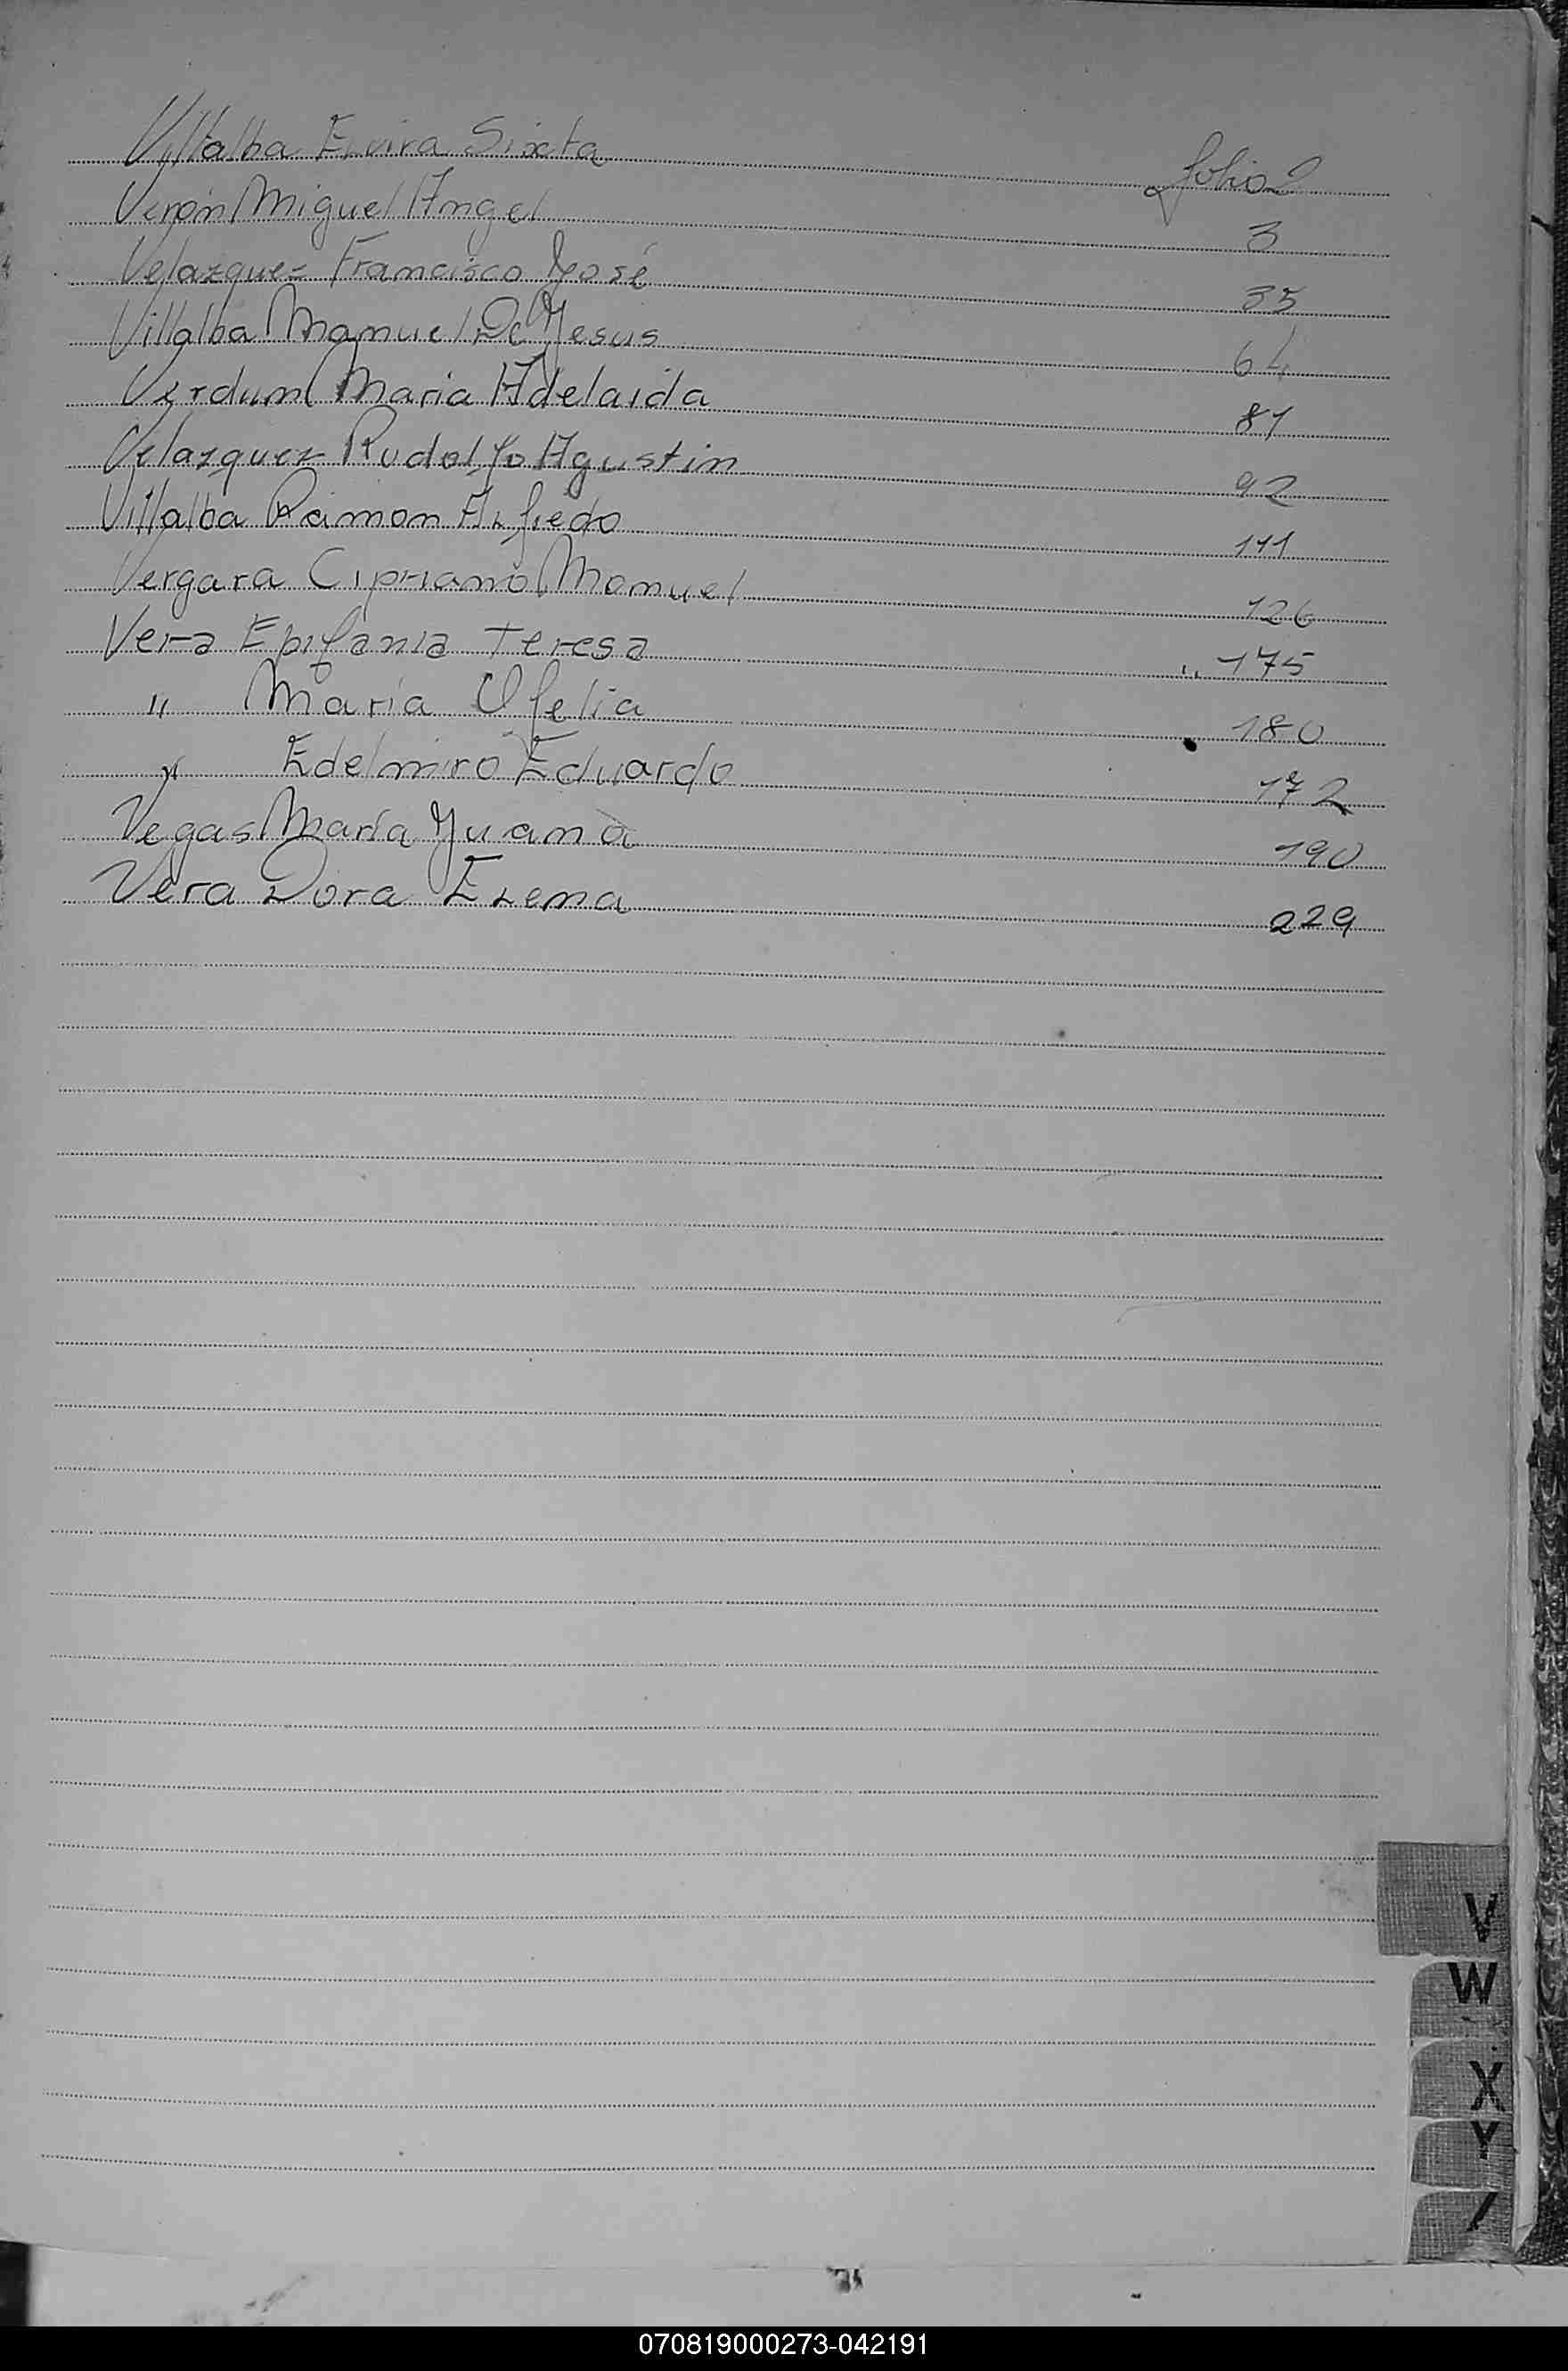 Villalba Elvira Sixta folio 2
Verón Miguel Angel 3
Velazquez Francisco José 35
Villalba Manuel De Jesus 64
Verdun Maria Adelaida 81
Velazquez Rudolfo Agustin 92
Villalba Ramon Alfredo 111
Vergara Cipriano Manuel 126
Vera Epifania Teresa " 175
" María Ofelia 180
" Edelmiro Eduardo 172
Vegas María Juana 190
Vera Dora Elena 229
V
W
X
Y
070819000273-042191